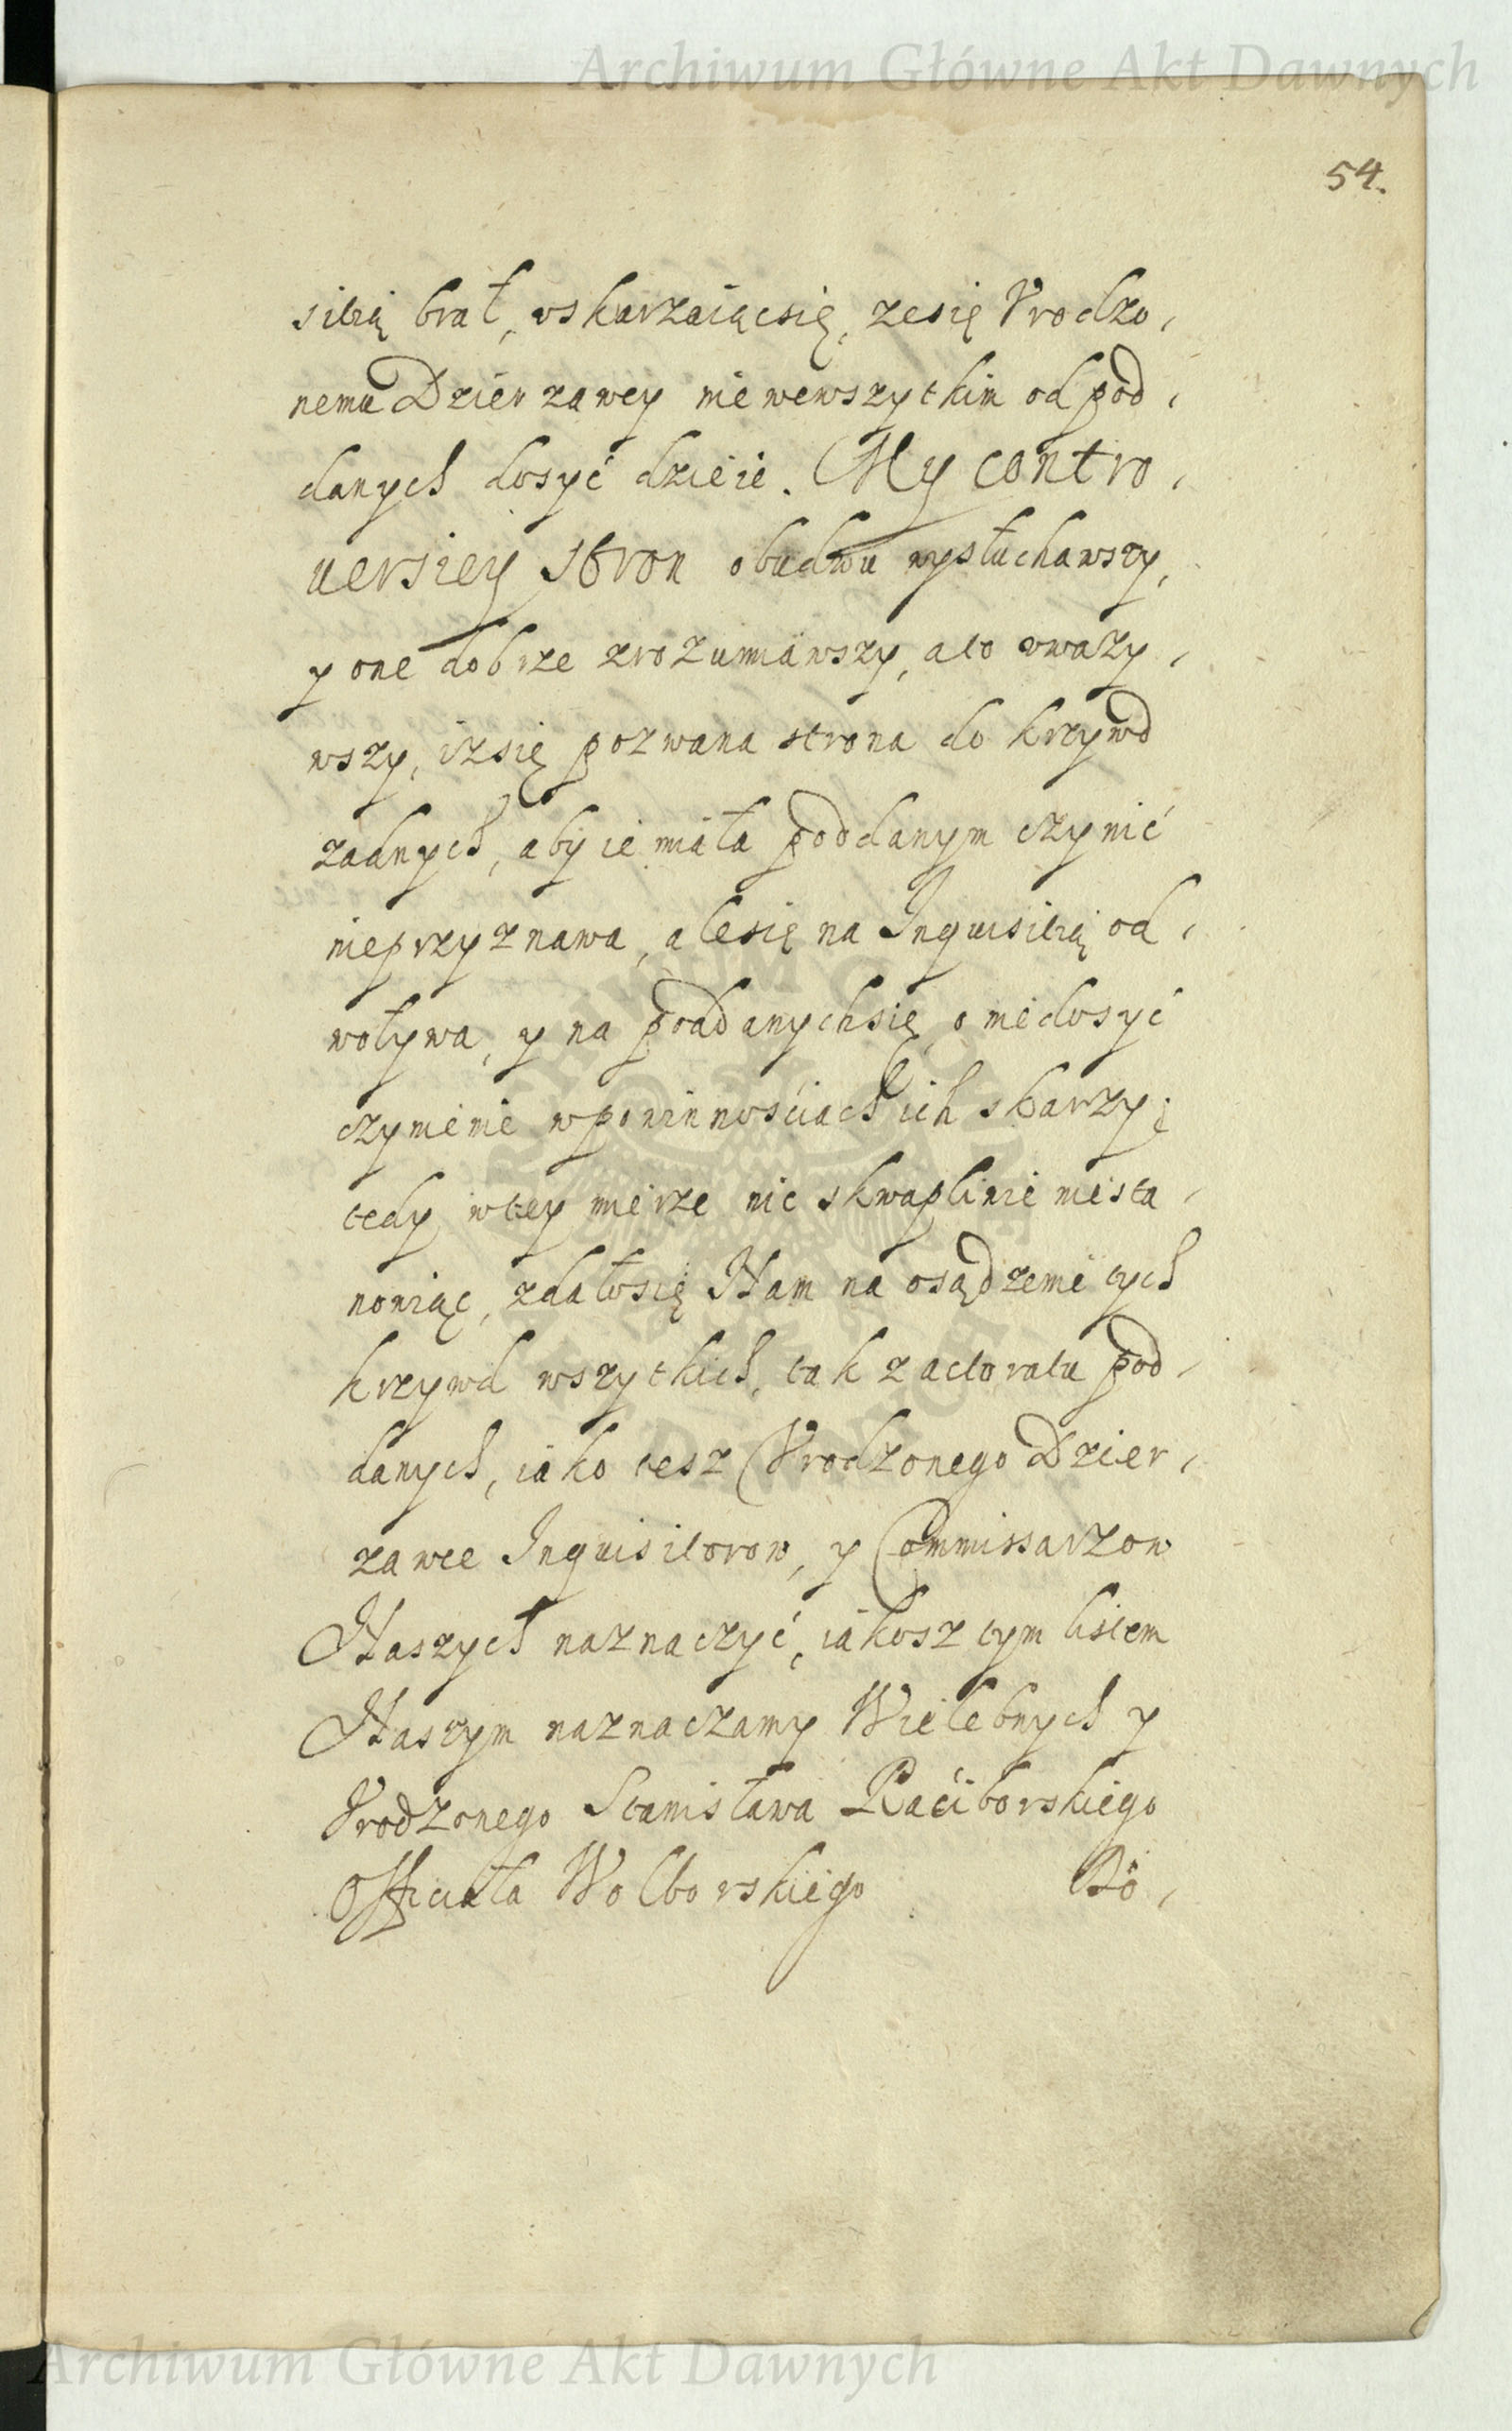 Archiwum Główne Akt Dawnych
54.
sitią brał, uskarzaiącsię, zesię Vrodzo,
nemu Dzierzawcy niewewszytkim od pod,
danych dosyć dzieie. My contro,
uersiey stron obudwu wysłuchawszy,
y one dobrze zrozumiawszy, ato uwazy,
wszy, izsię pozwana strona do krzywd
zadnych, aby ie miała poddanym czynić
nieprzyznawa, alesię na Inquisitią od,
woływa, y na poddanychsię o niedosyć
czynienie wpowinnościach ich skarzy;
tedy wtey mierze nic skwapliwie niesta,
nowiąc, zdałosię Nam na osądzenie tych
krzywd wszytkich, tak z actoratu pod,
danych, iako tesz Vrodzonego Dzier,
zawce Inquisitorow, y Commissarzow
Naszych naznaczyć, iakosz tym listem
Naszym naznaczamy Wielebnych y
Vrodzonego Stanisława Raciborskiego
Officiała Wolborskiego Bo,
Archiwum Główne Akt Dawnych